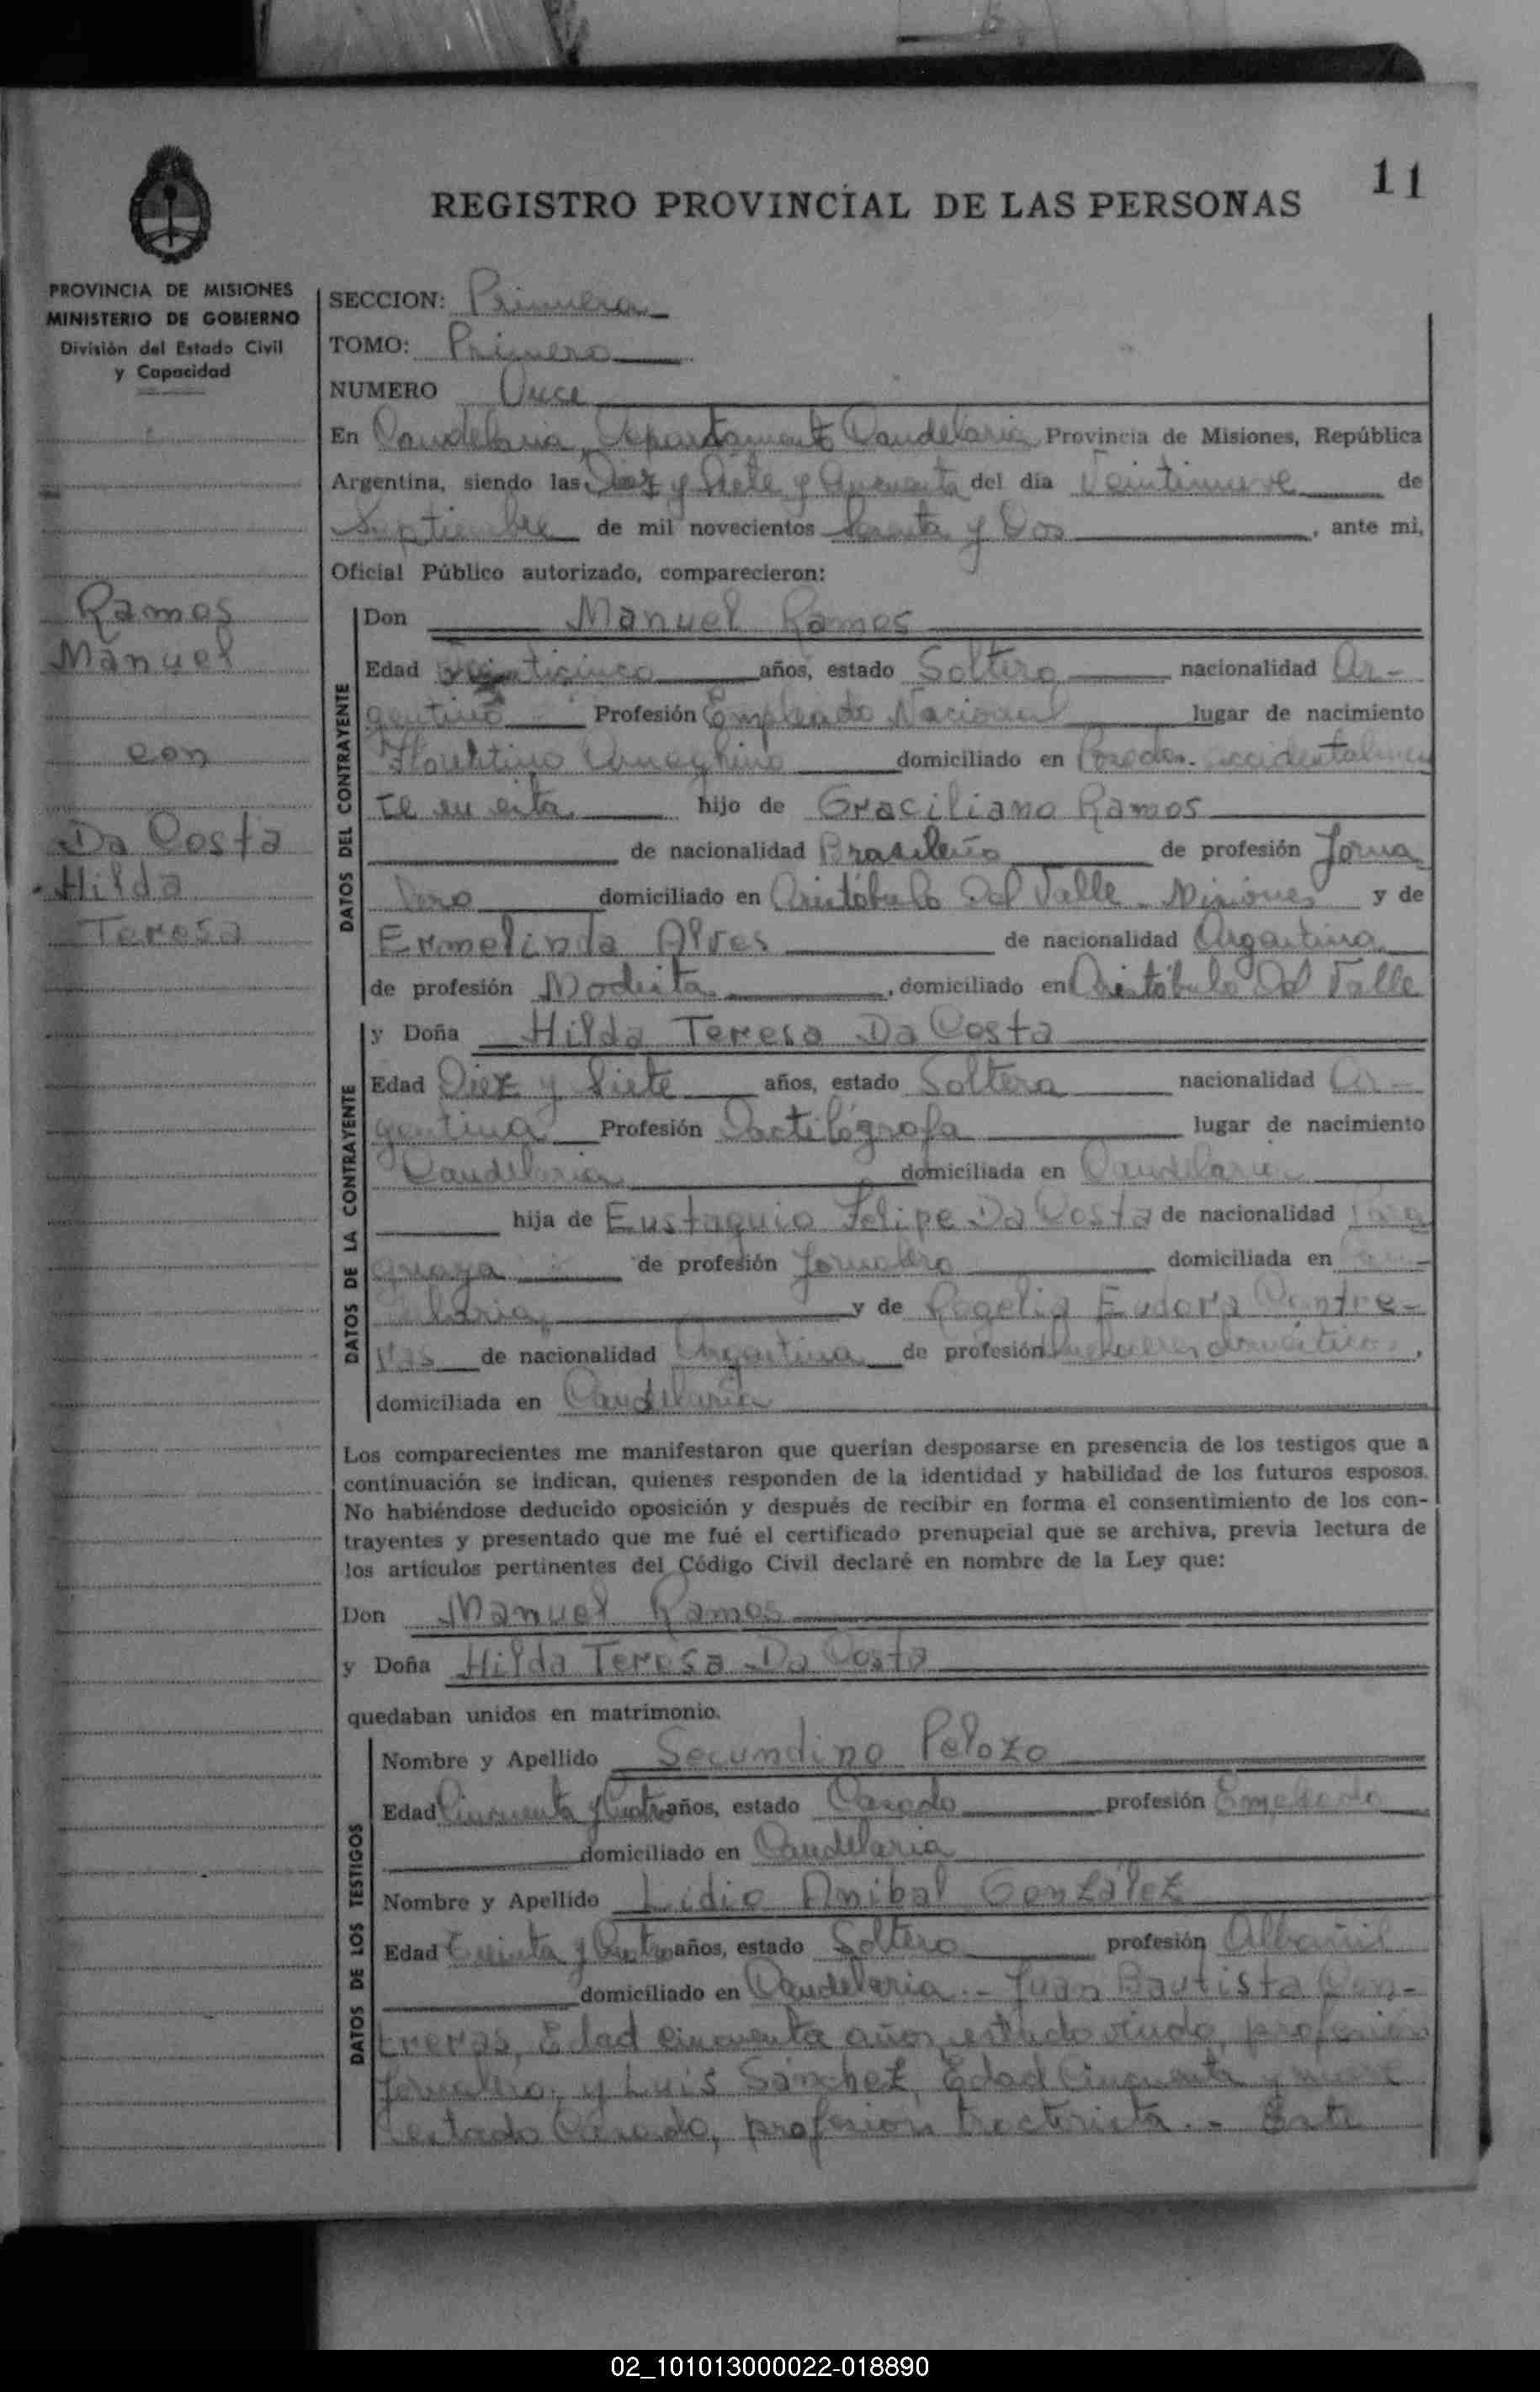 11
REGISTRO PROVINCIAL DE LAS PERSONAS
PROVINCIA DE MISIONES
MINISTERIO DE GOBIERNO
División del Estado Civil
y Capacidad
Ramos
Manuel
con
Da Costa
Hilda
Teresa
SECCION: Primera
TOMO: Primero
NUMERO Once
En Candelaria, Departamento Candelaria Provincia de Misiones, República
Argentina, siendo las Diez y Siete y Cincuenta del día Veintinueve de
Septiembre de mil novecientos Sesenta y Dos, ante mi,
Oficial Público autorizado, comparecieron:
DATOS DEL CONTRAYENTE
Don Manuel Ramos
Edad Veinticinco años, estado Soltero nacionalidad Ar-
gentino Profesión Empleado Nacional lugar de nacimiento
Florentino Ameghino domiciliado en Posadas. accidentalmen
te en esta hijo de Graciliano Ramos
de nacionalidad Brasileño de profesión Jorna
lero domiciliado en Aristóbulo Del Valle - Misiones y de
Ermelinda Alves de nacionalidad Argentina
de profesión Modista, domiciliado en Aristóbulo Del Valle
DATOS DE LA CONTRAYENTE
y Doña Hilda Teresa Da Costa
Edad Diez y Siete años, estado Soltera nacionalidad Ar-
gentina Profesión Dactilógrafa lugar de nacimiento
Candelaria domiciliada en Candelaria
hija de Eustaquio Felipe Da Costa de nacionalidad Para
guaya de profesión Jornalero domiciliada en Can-
delaria y de Rogelia Eudora Contre-
ras de nacionalidad Argentina de profesión quehaceres domésticos,
domiciliada en Candelaria
Los comparecientes me manifestaron que querian desposarse en presencia de los testigos que a
continuación se indican, quienes responden de la identidad y habilidad de los futuros esposos.
No habiéndose deducido oposición y después de recibir en forma el consentimiento de los con-
trayentes y presentado que me fué el certificado prenupcial que se archiva, previa lectura de
los artículos pertinentes del Código Civil declaré en nombre de la Ley que:
Don Manuel Ramos
y Doña Hilda Teresa Da Costa
quedaban unidos en matrimonio.
DATOS DE LOS TESTIGOS
Nombre y Apellido Secundino Pelozo
Edad Cincuenta y Cuatro años, estado Casado profesión Empleado
domiciliado en Candelaria
Nombre y Apellido Lidio Anibal González
Edad Treinta y Cuatro años, estado Soltero profesión Albañil
domiciliado en Candelaria.- Juan Bautista Con-
treras, Edad cincuenta años, estado viudo, profesión
Jornalero, y Luis Sánchez, Edad Cincuenta y nueve
estado Casado, profesion tractorista.- Este
02_101013000022-018890